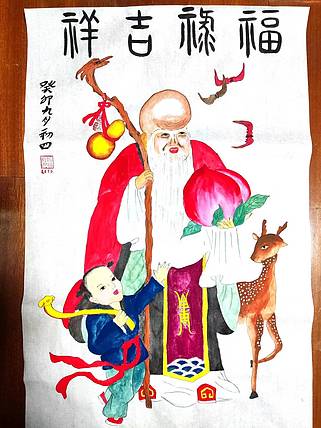 福禄吉祥
癸卯九月初四